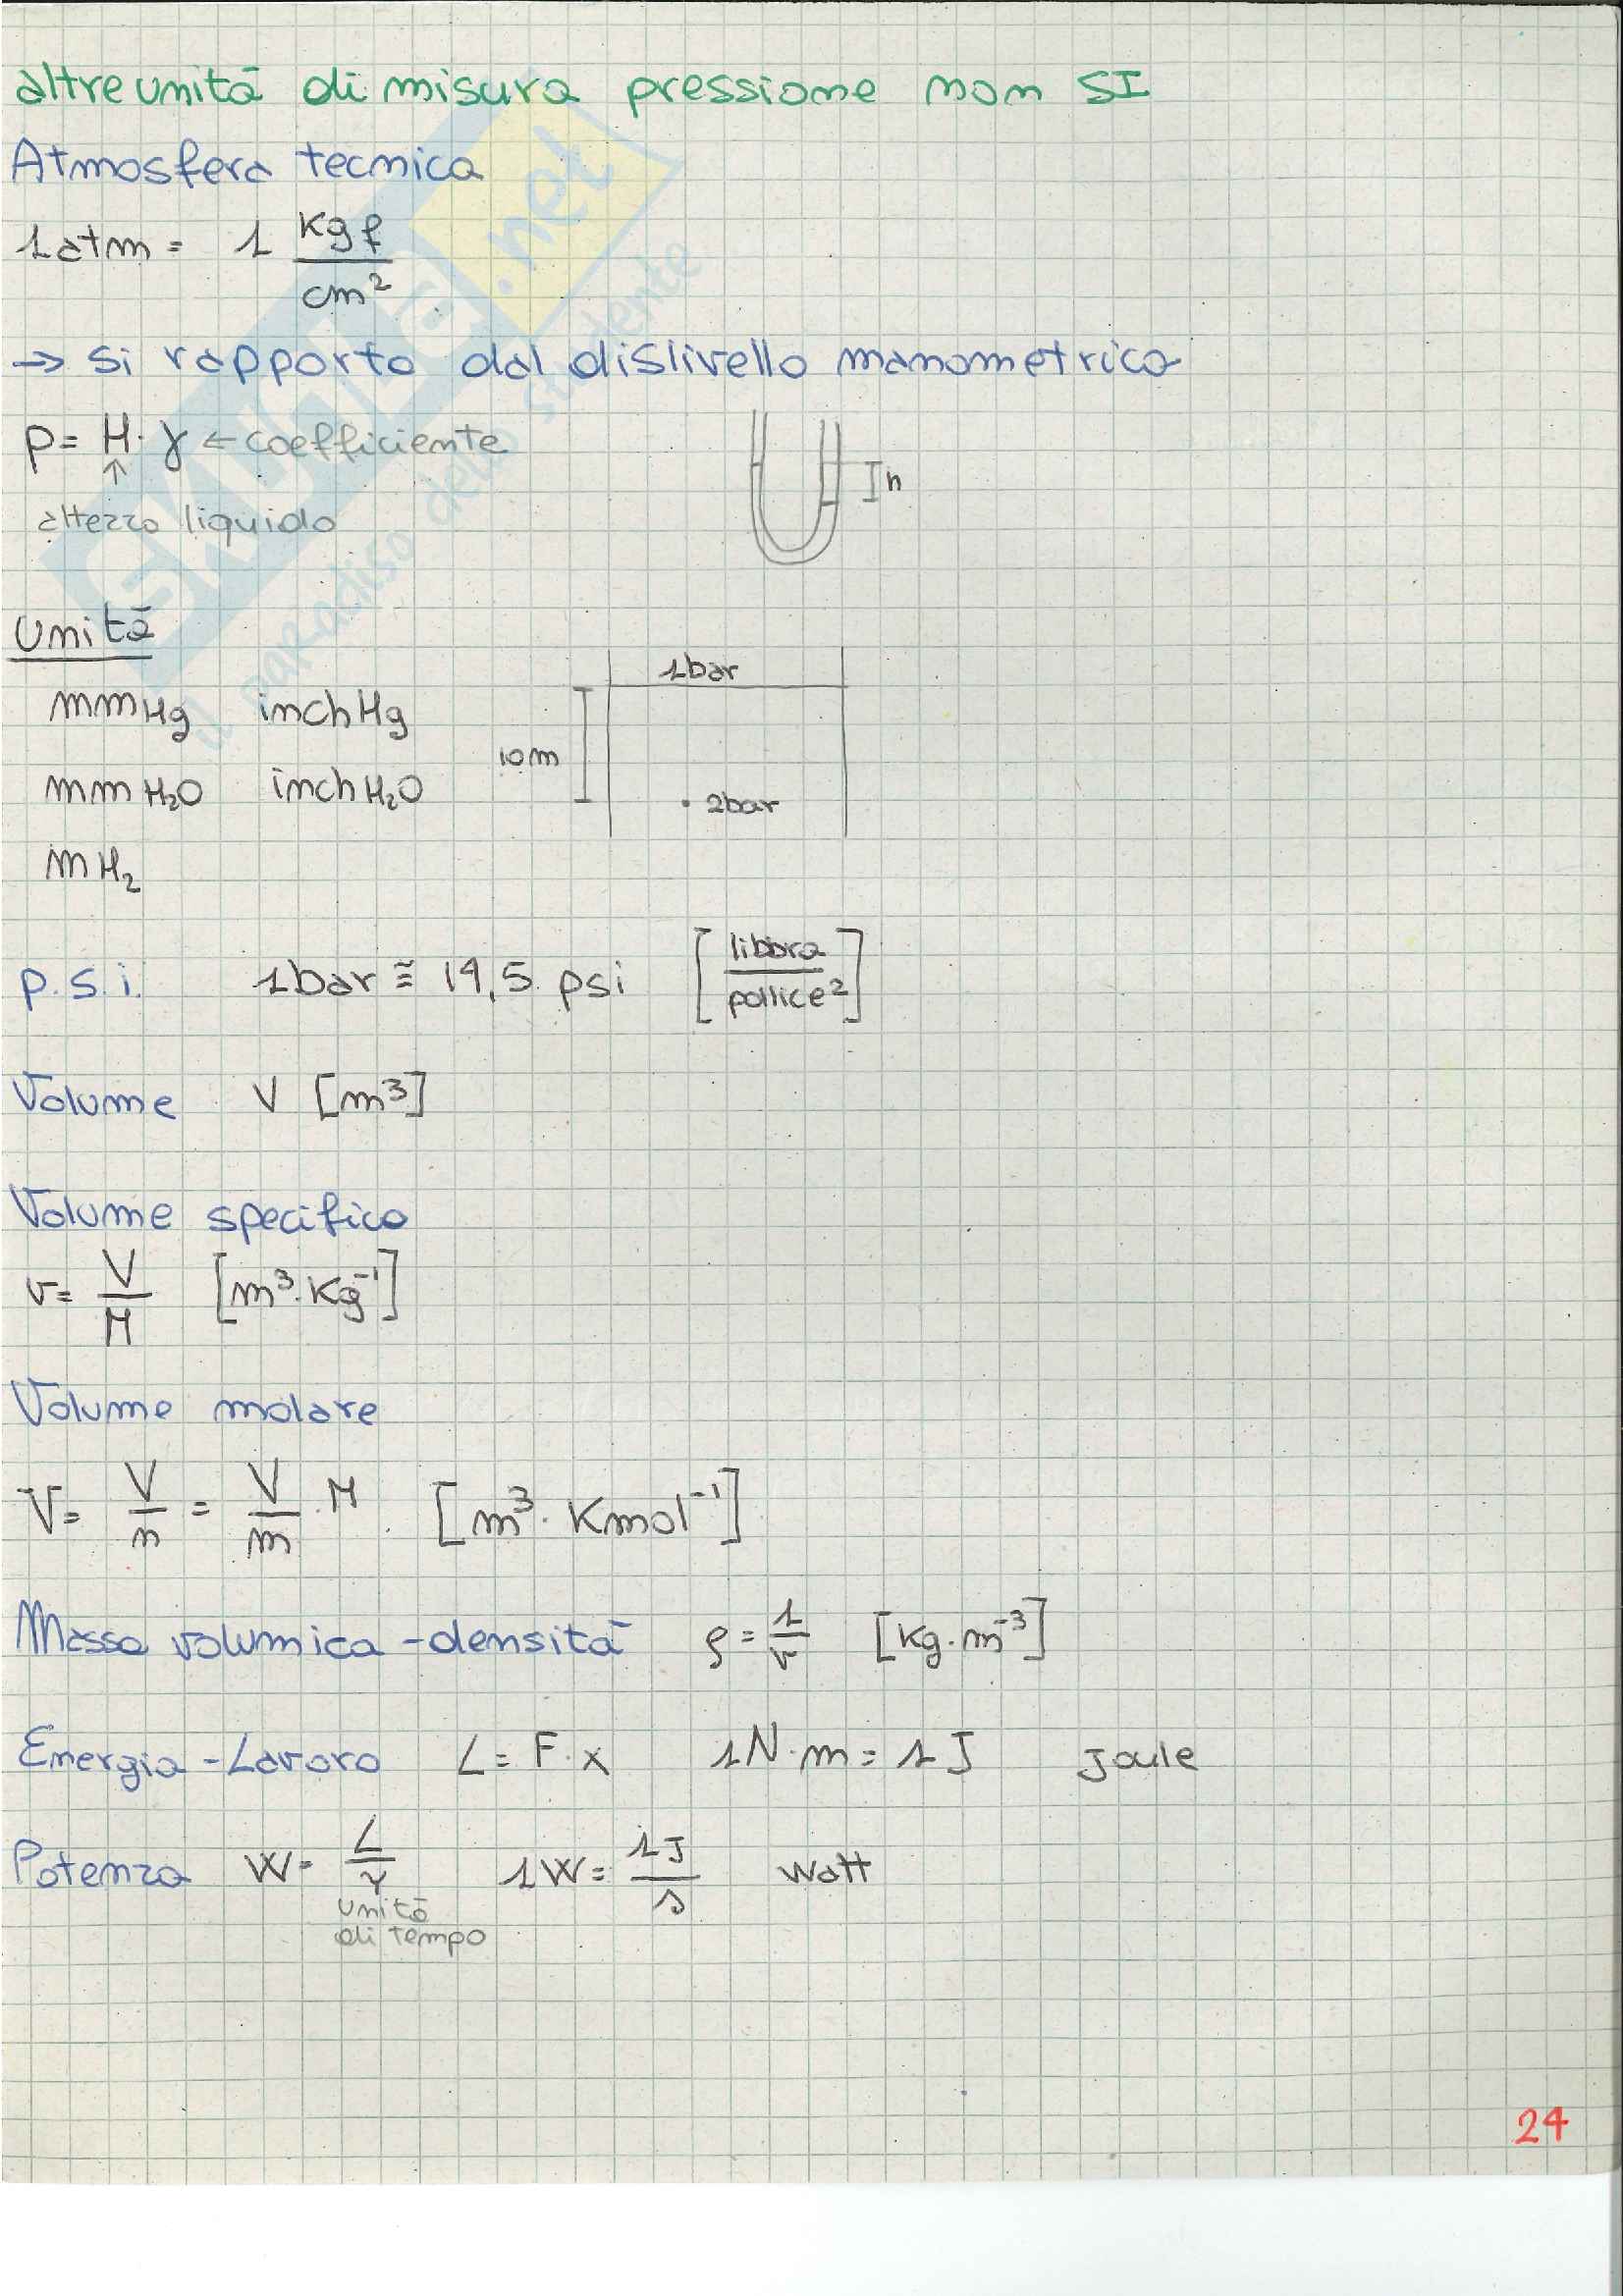 altre unità di misura pressione non SI
Atmosfera tecnica
1 atm = 1 kgf/cm²
→ si rapporto dal dislivello manometrico
p = H · γ ← coefficiente
↑
altezza liquido
I h
Unità
1bar
mmHg inchHg
10m
mmH₂O inchH₂O
· 2bar
mH₂
p.s.i. 1bar ≅ 14,5 psi [libbra/pollice²]
Volume V [m³]
Volume specifico
v = V/M [m³·Kg⁻¹]
Volume molare
V̄ = V/n = V/m · M [m³·Kmol⁻¹]
Massa volumica - densità ρ = 1/v [kg·m⁻³]
Energia - Lavoro L = F·x 1N·m = 1J Joule
Potenza W = L/τ 1W = 1J/s Watt
unità
di tempo
24
SKUOLA.net
il paradiso dello studente